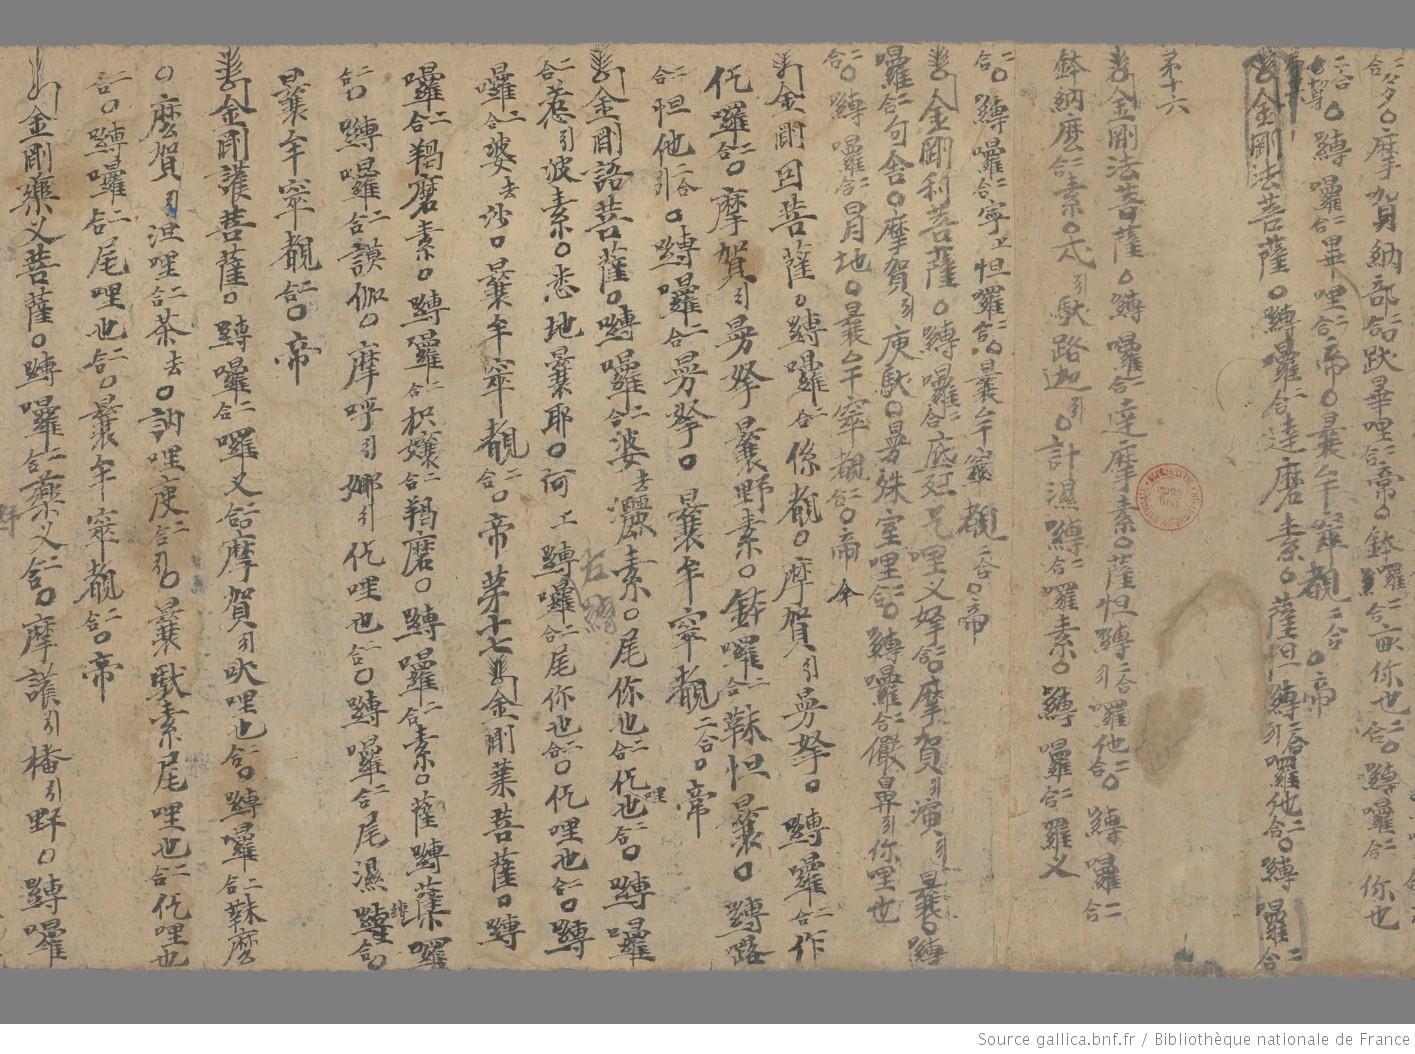 二合夕○摩賀納部二合跋畢哩二合帝○鉢囉二合畝你也二合○嚩囉二合你也
二合○嚩囉二合畢哩二合帝○曩牟窣覩二合○帝
金剛法菩薩○嚩囉二合達磨素○薩怛嚩引二合囉他二合○嚩囉二合
第十六
金剛法菩薩○嚩囉二合達摩素○薩怛嚩引二合囉他二合○嚩囉二合
鉢納麽二合素○引馱路迦引○計濕嚩二合囉素○嚩囉二合羅义
二合○嚩囉二合寧上怛羅二合○曩牟窣覩二合○帝
金剛利菩薩○嚩囉二合底哩义二合摩賀引演引曩○嚩
囉二合句舍○摩賀引庾馱○曼殊室哩二合○嚩囉二合儼鼻引你哩也
二合○嚩囉二合地○曩牟窣覩二合○帝
金剛因菩薩○嚩囉二合係覩○摩賀引曼拏○嚩囉二合作
仡囉二合○摩賀引曼拏曩野素○鉢囉二合韈怛曩○嚩路
二合怛他引二合○嚩囉二合曼拏○曩牟窣覩二合○帝
金剛語菩薩○嚩囉二合婆去灑素○尾你也二合仡哩也二合○嚩囉
左嚩
二合惹引波素○悉地曩耶○阿上嚩囉二合尾你也二合○仡哩也二合○嚩
囉二合婆去沙○曩牟窣覩二合○帝 第十七 金剛業菩薩○嚩
囉二合羯磨素○嚩囉二合枳孃二合羯磨○嚩囉二合素○薩嚩薩囉
二合○嚩囉二合謨伽○摩呼引娜引仡哩也二合○嚩囉二合尾濕嚩二合
曩牟窣覩二合○帝
金剛護菩薩○嚩囉二合囉义二合摩賀引吠哩也二合○嚩囉二合韈麽
○麽賀引涅哩二合茶去○訥哩庾二合引○曩馱素尾哩也二合仡哩也
二合○嚩囉二合尾哩也二合○曩牟窣覩二合○帝
金剛藥义菩薩○嚩囉二合藥义二合○摩護引播引野○嚩囉